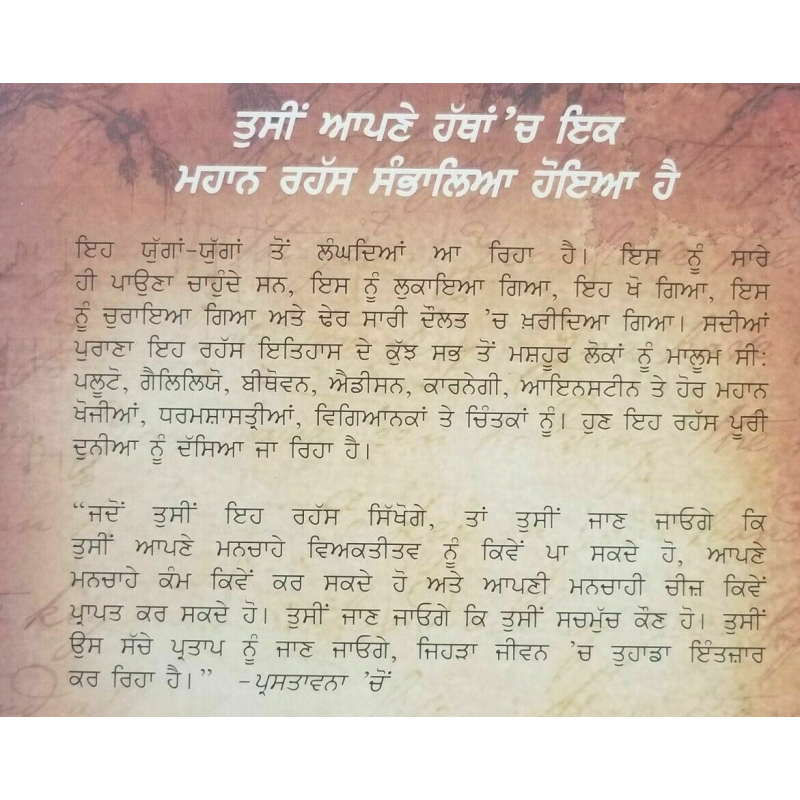 ਤੁਸੀਂ ਆਪਣੇ ਹੱਥਾਂ ’ਚ ਇਕ
ਮਹਾਨ ਰਹੱਸ ਸੰਭਾਲਿਆ ਹੋਇਆ ਹੈ
ਇਹ ਯੁੱਗਾਂ-ਯੁੱਗਾਂ ਤੋਂ ਲੰਘਦਿਆਂ ਆ ਰਿਹਾ ਹੈ। ਇਸ ਨੂੰ ਸਾਰੇ
ਹੀ ਪਾਉਣਾ ਚਾਹੁੰਦੇ ਸਨ, ਇਸ ਨੂੰ ਲੁਕਾਇਆ ਗਿਆ, ਇਹ ਖੋ ਗਿਆ, ਇਸ
ਨੂੰ ਚੁਰਾਇਆ ਗਿਆ ਅਤੇ ਢੇਰ ਸਾਰੀ ਦੌਲਤ ’ਚ ਖ਼ਰੀਦਿਆ ਗਿਆ। ਸਦੀਆਂ
ਪੁਰਾਣਾ ਇਹ ਰਹੱਸ ਇਤਿਹਾਸ ਦੇ ਕੁੱਝ ਸਭ ਤੋਂ ਮਸ਼ਹੂਰ ਲੋਕਾਂ ਨੂੰ ਮਾਲੂਮ ਸੀ:
ਪਲੂਟੋ, ਗੈਲਿਲਿਯੋ, ਬੀਥੋਵਨ, ਐਡੀਸਨ, ਕਾਰਨੇਗੀ, ਆਇਨਸਟੀਨ ਤੇ ਹੋਰ ਮਹਾਨ
ਖੋਜੀਆਂ, ਧਰਮਸ਼ਾਸਤ੍ਰੀਆਂ, ਵਿਗਿਆਨਕਾਂ ਤੇ ਚਿੰਤਕਾਂ ਨੂੰ। ਹੁਣ ਇਹ ਰਹੱਸ ਪੂਰੀ
ਦੁਨੀਆ ਨੂੰ ਦੱਸਿਆ ਜਾ ਰਿਹਾ ਹੈ।
“ਜਦੋਂ ਤੁਸੀਂ ਇਹ ਰਹੱਸ ਸਿੱਖੋਗੇ, ਤਾਂ ਤੁਸੀਂ ਜਾਣ ਜਾਓਗੇ ਕਿ
ਤੁਸੀਂ ਆਪਣੇ ਮਨਚਾਹੇ ਵਿਅਕਤੀਤਵ ਨੂੰ ਕਿਵੇਂ ਪਾ ਸਕਦੇ ਹੋ, ਆਪਣੇ
ਮਨਚਾਹੇ ਕੰਮ ਕਿਵੇਂ ਕਰ ਸਕਦੇ ਹੋ ਅਤੇ ਆਪਣੀ ਮਨਚਾਹੀ ਚੀਜ਼ ਕਿਵੇਂ
ਪ੍ਰਾਪਤ ਕਰ ਸਕਦੇ ਹੋ। ਤੁਸੀਂ ਜਾਣ ਜਾਓਗੇ ਕਿ ਤੁਸੀਂ ਸਚਮੁੱਚ ਕੌਣ ਹੋ। ਤੁਸੀਂ
ਉਸ ਸੱਚੇ ਪ੍ਰਤਾਪ ਨੂੰ ਜਾਣ ਜਾਓਗੇ, ਜਿਹੜਾ ਜੀਵਨ ’ਚ ਤੁਹਾਡਾ ਇੰਤਜ਼ਾਰ
ਕਰ ਰਿਹਾ ਹੈ।” -ਪ੍ਰਸਤਾਵਨਾ ’ਚੋਂ